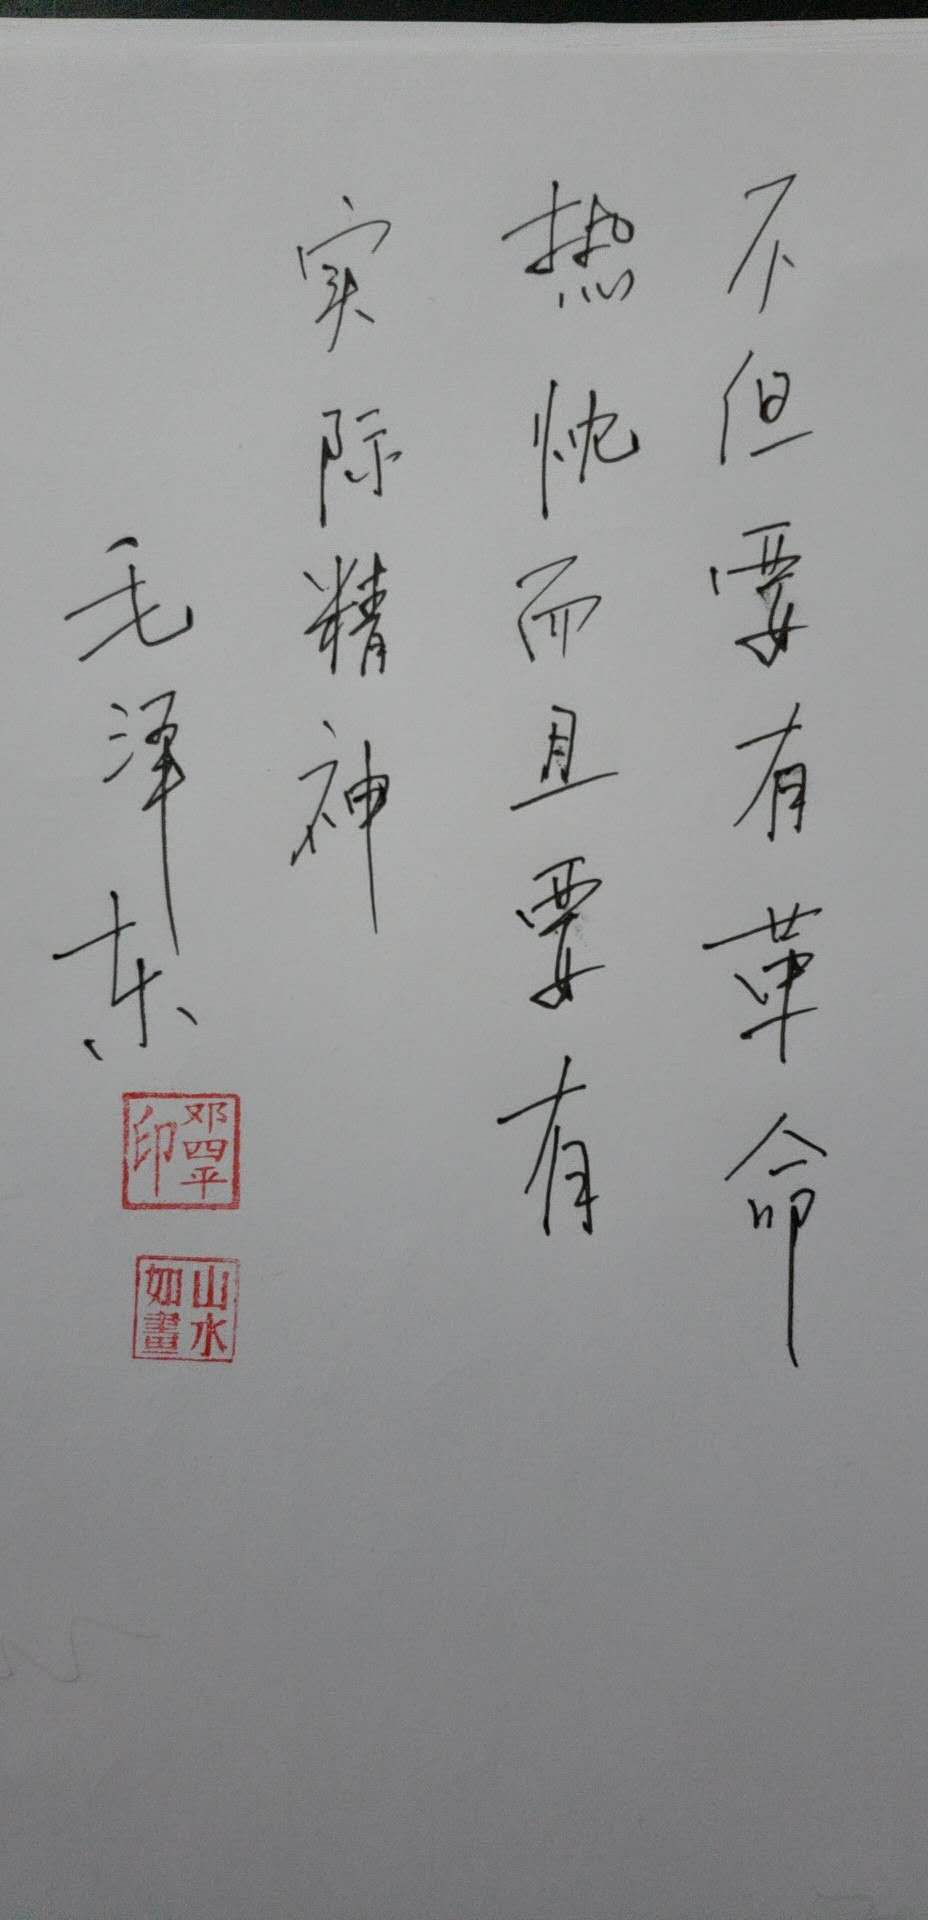 不但要有革命
热忱而且要有
实际精神
毛泽东
邓四平
印
山水
如畫